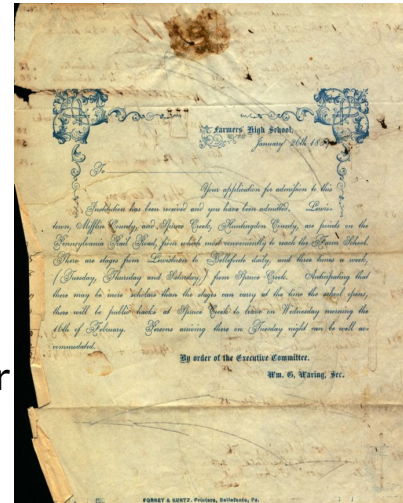 Farmers High School,
January 26th
To
Your application for admission to this
Institution has been received and you have been admitted. Lewis-
town, Mifflin County, and Spruce Creek, Huntingdon County, are points on the
Pennsylvania Rail Road, from which most conveniently to reach the Farm School.
There are stages from Lewistown to Bellefonte daily, and three times a week,
(Tuesday, Thursday and Saturday,) from Spruce Creek. Anticipating that
there may be more scholars than the stages can carry at the time the school opens,
there will be public hacks at Spruce Creek to leave on Wednesday morning the
16th of February. Persons arriving there on Tuesday night can be well ac-
commodated.
r
By order of the Executive Committee.
Wm. G. Waring, Sec.
FURREY & KURTZ, Printers, Bellefonte, Pa.